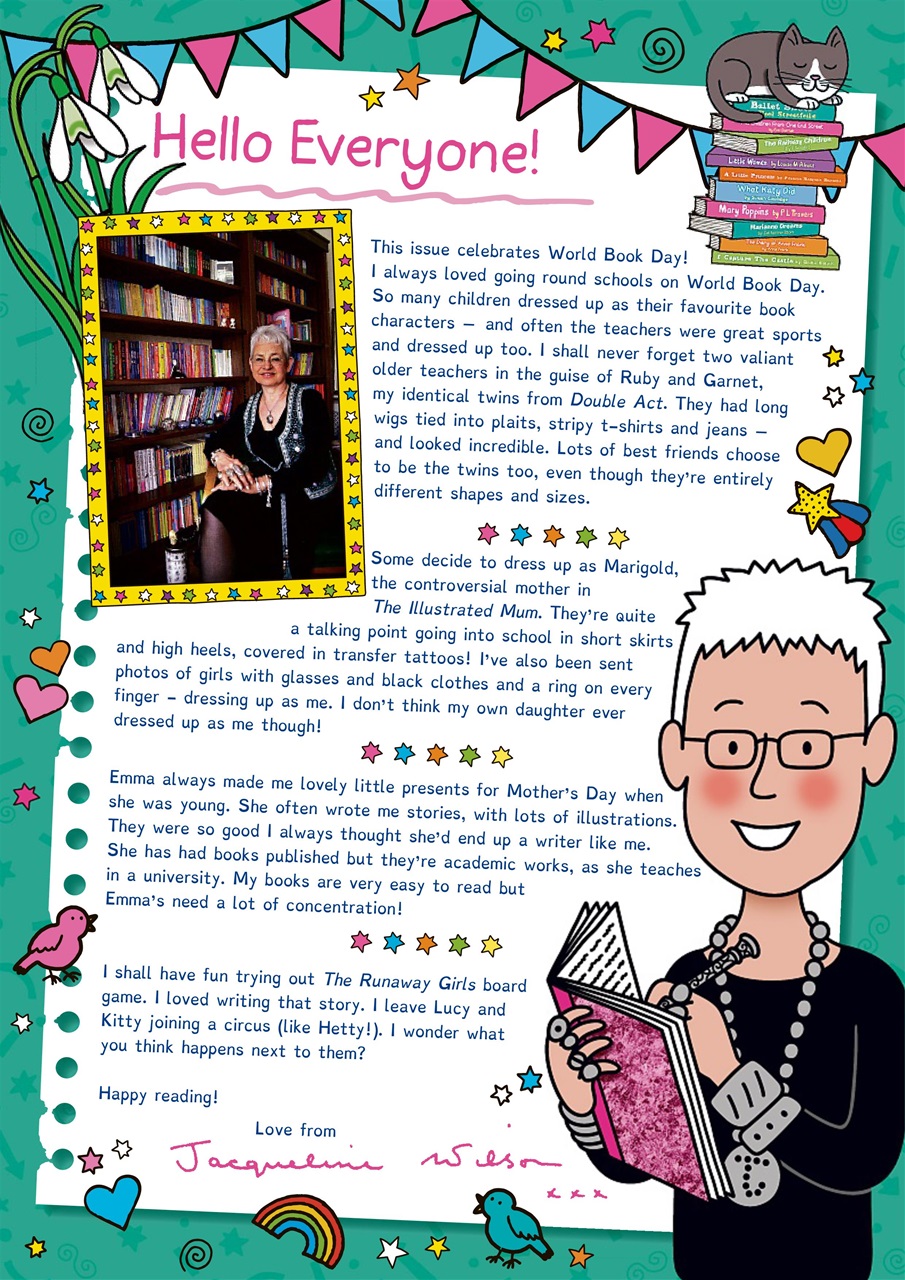 Hello Everyone!
Ballet Shoes
The Railway Children
Little Women by Louisa M Alcott
A Little Princess by Frances Hodgson Burnett
What Katy Did
by Susan Coolidge
Mary Poppins by P L Travers
Marianne Dreams
The Diary of Anne Frank
I Capture The Castle
This issue celebrates World Book Day!
I always loved going round schools on World Book Day.
So many children dressed up as their favourite book
characters – and often the teachers were great sports
and dressed up too. I shall never forget two valiant
older teachers in the guise of Ruby and Garnet,
my identical twins from Double Act. They had long
wigs tied into plaits, stripy t-shirts and jeans –
and looked incredible. Lots of best friends choose
to be the twins too, even though they're entirely
different shapes and sizes.
Some decide to dress up as Marigold,
the controversial mother in
The Illustrated Mum. They're quite
a talking point going into school in short skirts
and high heels, covered in transfer tattoos! I've also been sent
photos of girls with glasses and black clothes and a ring on every
finger – dressing up as me. I don't think my own daughter ever
dressed up as me though!
Emma always made me lovely little presents for Mother's Day when
she was young. She often wrote me stories, with lots of illustrations.
They were so good I always thought she'd end up a writer like me.
She has had books published but they're academic works, as she teaches
in a university. My books are very easy to read but
Emma's need a lot of concentration!
I shall have fun trying out The Runaway Girls board
game. I loved writing that story. I leave Lucy and
Kitty joining a circus (like Hetty!). I wonder what
you think happens next to them?
Happy reading!
Love from
Jacqueline Wilson
x x x